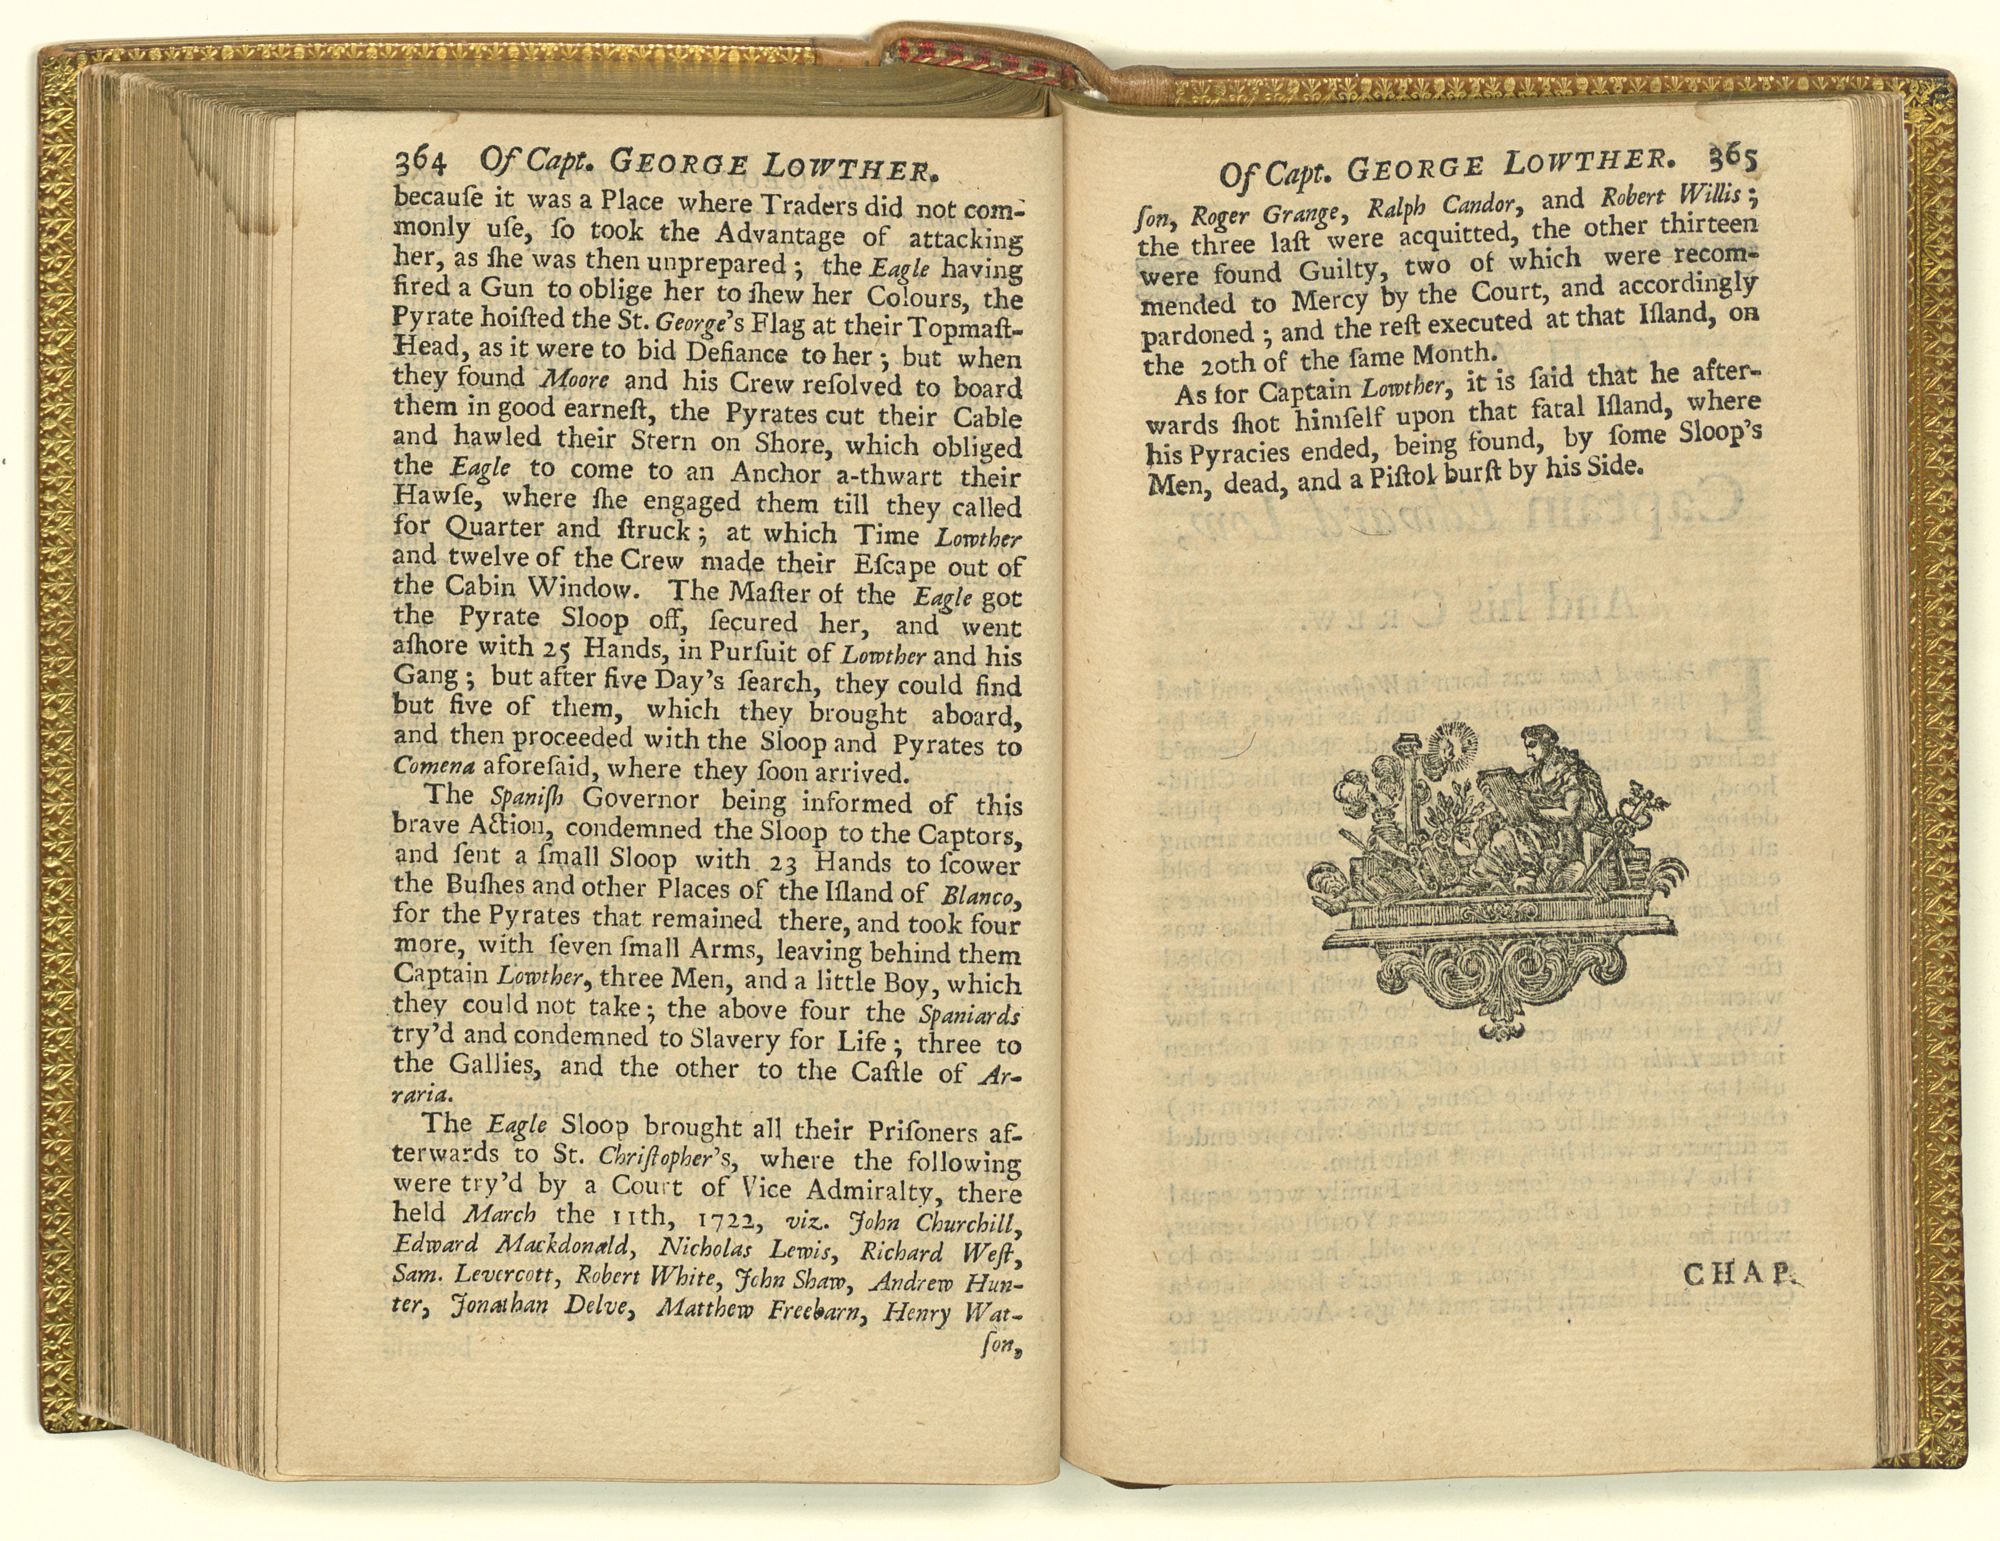 364 Of Capt. GEORGE LOWTHER.
becauſe it was a Place where Traders did not com-
monly uſe, ſo took the Advantage of attacking
her, as ſhe was then unprepared; the Eagle having
fired a Gun to oblige her to ſhew her Colours, the
Pyrate hoiſted the St. George's Flag at their Topmaſt-
Head, as it were to bid Defiance to her; but when
they found Moore and his Crew reſolved to board
them in good earneſt, the Pyrates cut their Cable
and hawled their Stern on Shore, which obliged
the Eagle to come to an Anchor a-thwart their
Hawſe, where ſhe engaged them till they called
for Quarter and ſtruck; at which Time Lowther
and twelve of the Crew made their Eſcape out of
the Cabin Window. The Maſter of the Eagle got
the Pyrate Sloop off, ſecured her, and went
aſhore with 25 Hands, in Purſuit of Lowther and his
Gang; but after five Day's ſearch, they could find
but five of them, which they brought aboard,
and then proceeded with the Sloop and Pyrates to
Comena aforeſaid, where they ſoon arrived.
The Spaniſh Governor being informed of this
brave Action, condemned the Sloop to the Captors,
and ſent a ſmall Sloop with 23 Hands to ſcower
the Buſhes and other Places of the Iſland of Blanco,
for the Pyrates that remained there, and took four
more, with ſeven ſmall Arms, leaving behind them
Captain Lowther, three Men, and a little Boy, which
they could not take; the above four the Spaniards
try'd and condemned to Slavery for Life; three to
the Gallies, and the other to the Caſtle of Ar-
raria.
The Eagle Sloop brought all their Priſoners af-
terwards to St. Chriſtopher's, where the following
were try'd by a Court of Vice Admiralty, there
held March the 11th, 1722, viz. John Churchill,
Edward Mackdonald, Nicholas Lewis, Richard Weſt,
Sam. Levercott, Robert White, John Shaw, Andrew Hun-
ter, Jonathan Delve, Matthew Freebarn, Henry Wat-
ſon,
Of Capt. GEORGE LOWTHER. 365
ſon, Roger Grange, Ralph Candor, and Robert Willis;
the three laſt were acquitted, the other thirteen
were found Guilty, two of which were recom-
mended to Mercy by the Court, and accordingly
pardoned; and the reſt executed at that Iſland, on
the 20th of the ſame Month.
As for Captain Lowther, it is ſaid that he after-
wards ſhot himſelf upon that fatal Iſland, where
his Pyracies ended, being found, by ſome Sloop's
Men, dead, and a Piſtol burſt by his Side.
CHAP.